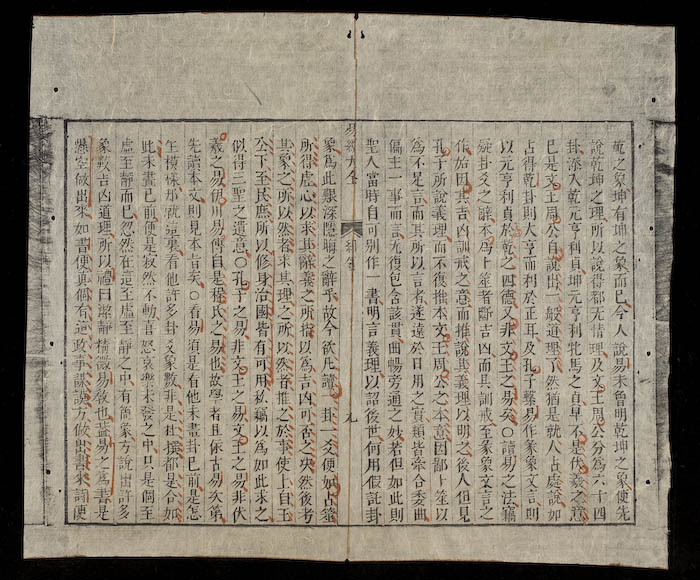 乾之象坤有坤之象而已今人說易未曾明乾坤之象便先
說乾坤之理所以說得都无情理及文王周公分為六十四
卦添入乾元亨利貞坤元亨利牝馬之貞早不是伏羲之意
已是文王周公自說出一般道理了然猶是就人占處說如
占得乾卦則大亨而利於正耳及孔子繫易作彖象文言則
以元亨利貞為乾之四德又非文王之易矣○讀易之法竊
疑卦爻之辭本為卜筮者斷吉凶而具訓戒至彖象文言之
作始因其吉凶訓戒之意而推說其義理以明之後人但見
孔子所說義理而不復推本文王周公之本意因鄙卜筮以
為不足言而其所以言者遂遠於日用之實類皆牽合委曲
偏主一事而言无復包含該貫曲暢旁通之妙若但如此則
聖人當時自可別作一書明言義理以詔後世何用假託卦
易經大全 綱領 九
象為此艱深隱晦之辭乎故今欲凡讀一卦一爻便如占筮
所得虛心以求其辭義之所指以為吉凶可否之決然後考
其象之所以然者求其理之所以然者推之於事使上自王
公下至民庶所以修身治國皆有可用私竊以為如此求之
似得三聖之遺意○孔子之易非文王之易文王之易非伏
羲之易伊川易傳自是程氏之易也故學者且依古易次第
先讀本文則見本旨矣○看易須是看他未畫卦已前是怎
生模樣那就這裏看他許多卦爻象數非是杜撰都是合如
此未畫已前便是寂然不動喜怒哀樂未發之中只是個至
虛至靜而已忽然在這至虛至靜之中有箇象方說出許多
象數吉凶道理所以禮曰潔靜精微易敎也蓋易之為書是
懸空做出來如書便真個有這政事謀謨方做出書來詩便